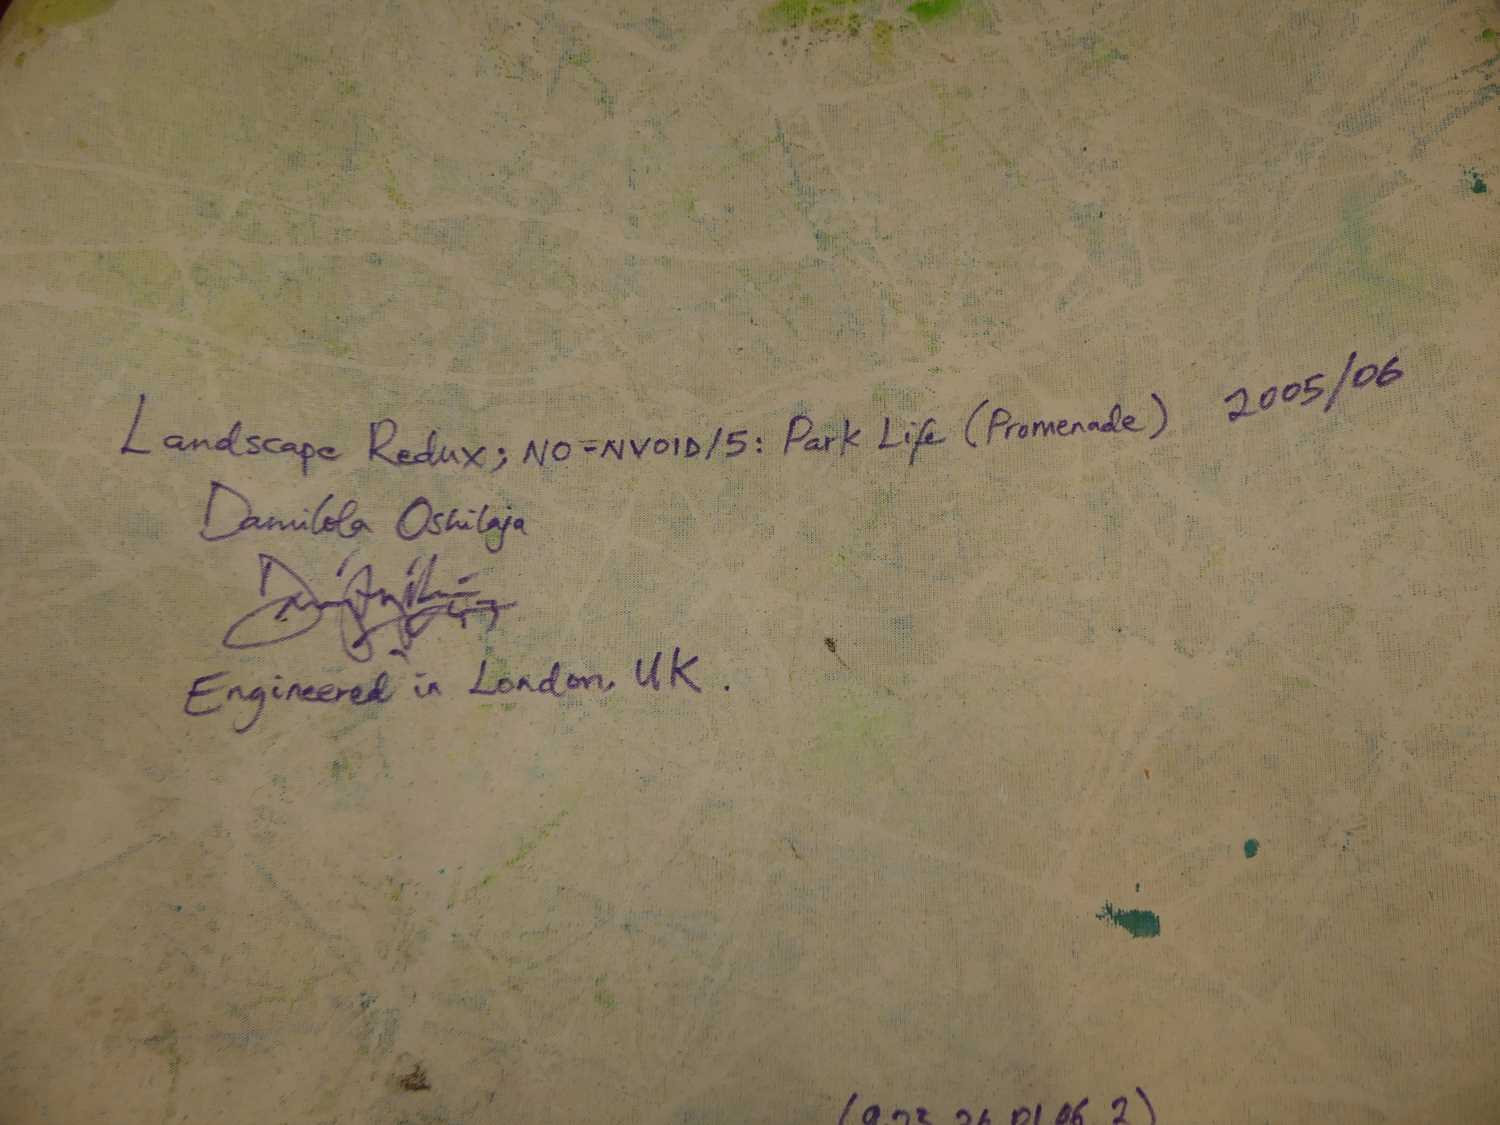 Landscape Redux; NO=NVOID/5: Park Life (Promenade) 2005/06
Damilola Oshilaja
Engineered in London, UK.